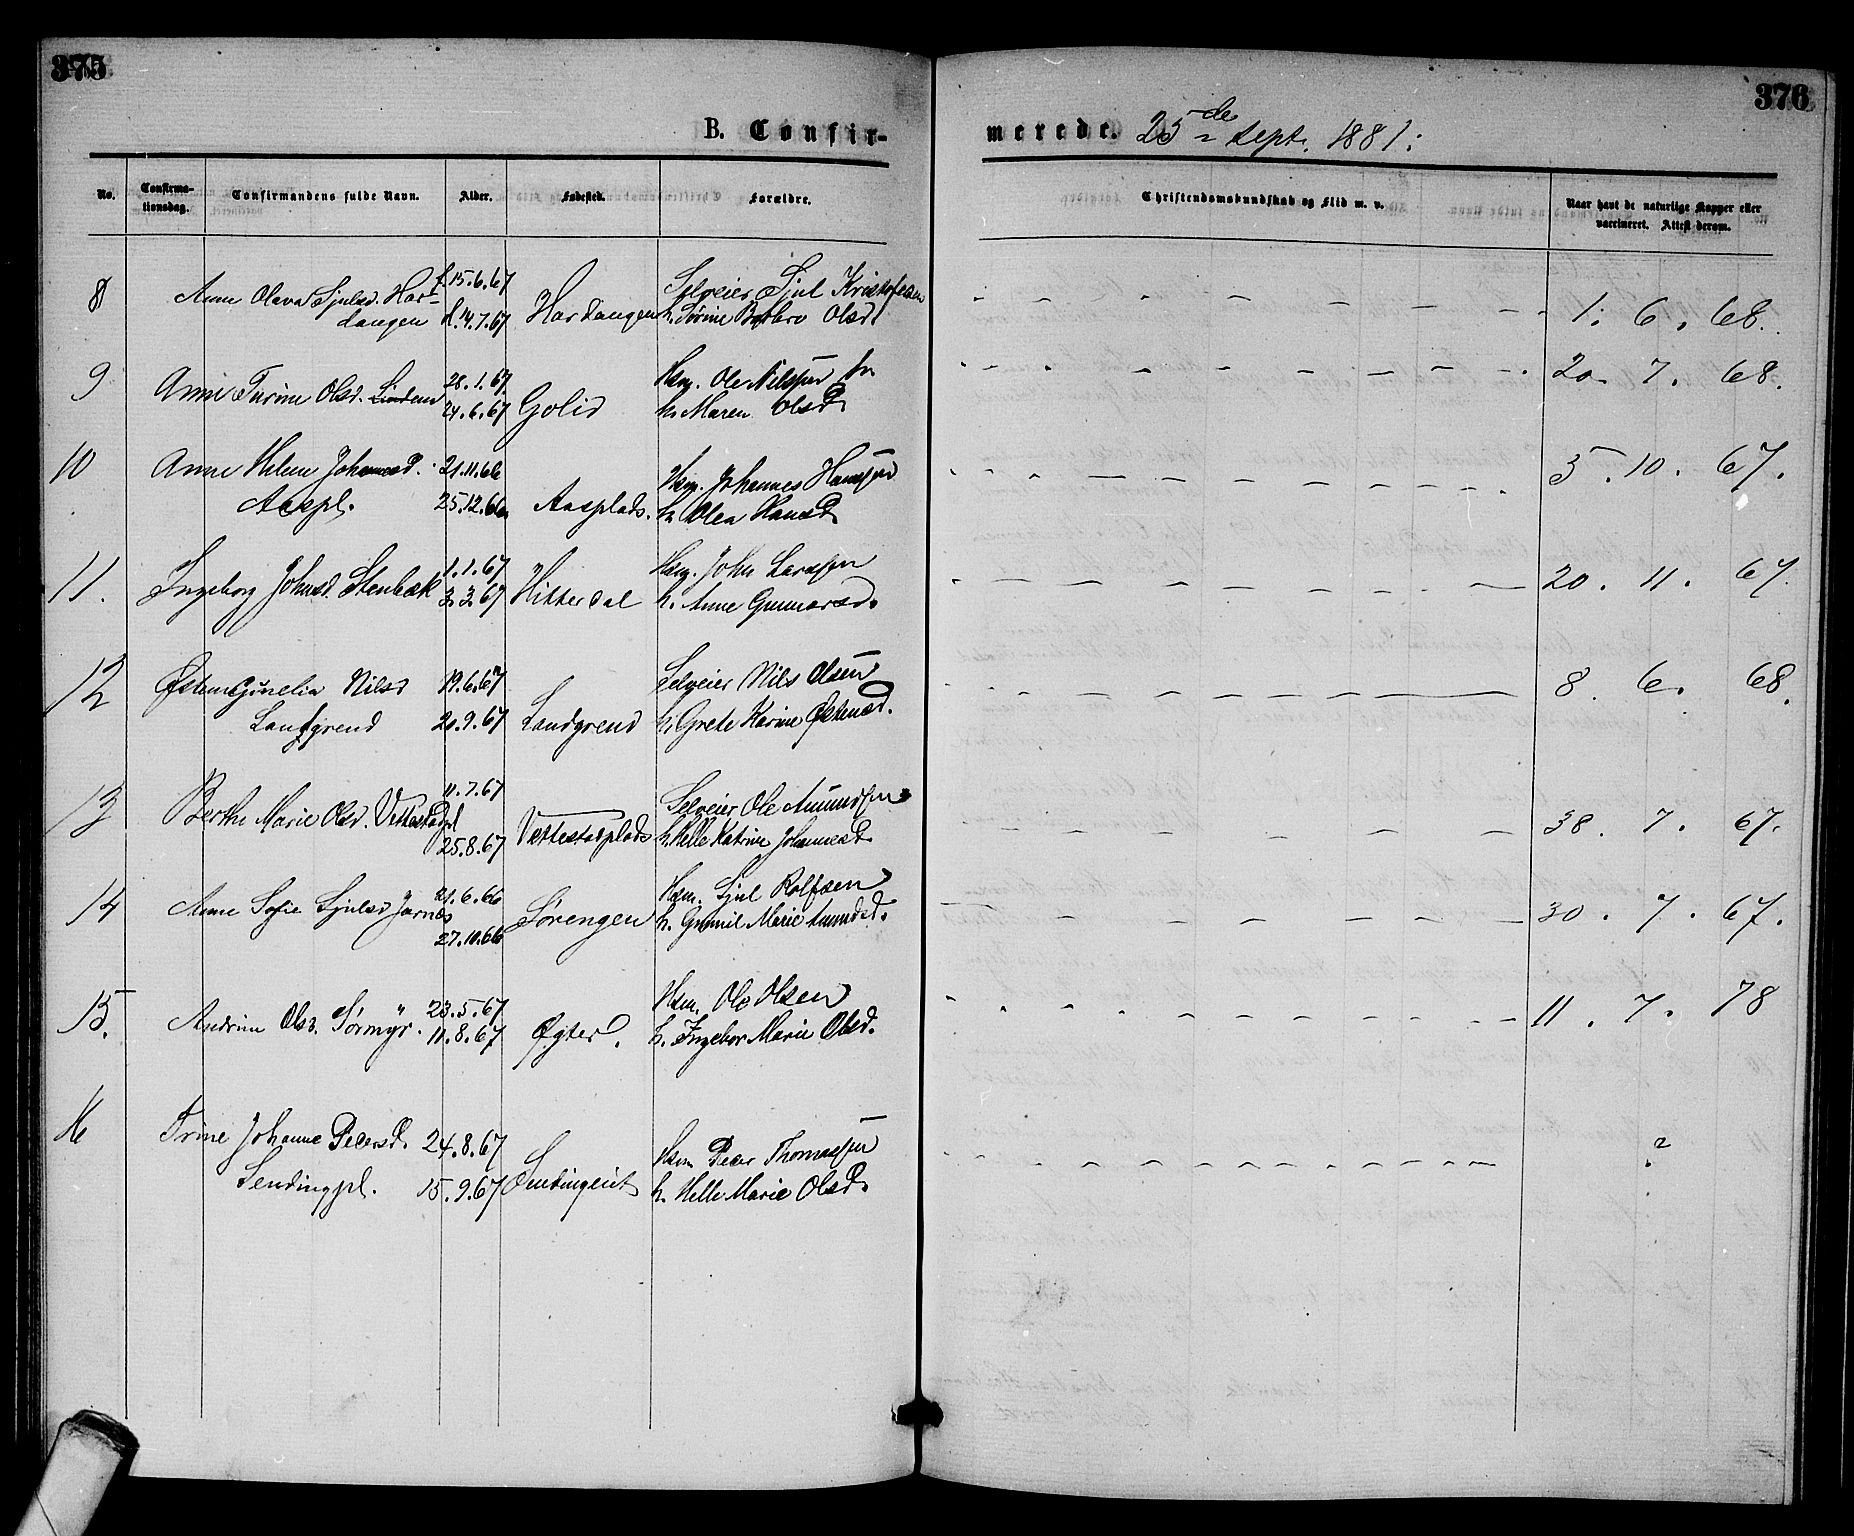 375
376
B. Confir-
merede. 25de Sept. 1881.
No.
Confirma-
tionsdag.
Confirmandens fulde Navn.
Alder.
Fødested.
Forældre.
Christendomskundskab og Flid m. v.
Naar havt de naturlige Kopper eller
vaccineret. Attest derom.
8 Anne Olava Sjulsd. Har- f. 15.6.67 Selveier Sjul Kristofersen
dangen d. 14.7.67 Hardangen h. Sørine Botbro Olsd. 1. 6. 68.
9 28.1.67 Hsm. Ole Nilssen
Anne Turine Olsd. Linden 24.6.67 Golid h. Maren Olsd. 20. 7. 68.
10 Anne Helene Johannesd. 21.11.66 Hsm. Johannes Hanssen
Aaspl. 25.12.66 Aasplads. h. Olea Hansd. 5. 10. 67.
11. 1.1.67 Hsm. John Larssen
Ingeborg Johnsd. Stenbæk 3.3.67 Hitterdal h. Anne Gunnarsd. 20. 11. 67.
12 Nilsd 19.6.67 Selveier Nils Olsen
Landgrend 20.9.67 Landgrend h. Grete Karine Østensd. 8. 6. 68.
13 11.7.67 Selveier Ole Amundsen
Berthe Marie Olsd. Vettestadpl 25.8.67 Vettestadplads h. Helle Katrine Johannesd. 38. 7. 67.
14 21.6.66 Hsm. Sjul Rolfsen
Anne Sofie Sjulsd Jarnæs 27.10.66 Sørengen h. Gunnil Marie Amundsd. 30. 7. 67.
15. 23.5.67 Hsm. Ole Olsen
Andrine Olsd. Sørmyr. 11.8.67 Øgter. h. Ingebor Marie Olsd. 11. 7. 78
16 Trine Johanne Pedersd. 24.8.67 Hsm Peder Thomassen ?
Sendingpl. 15.9.67 h. Helle Marie Olsd.